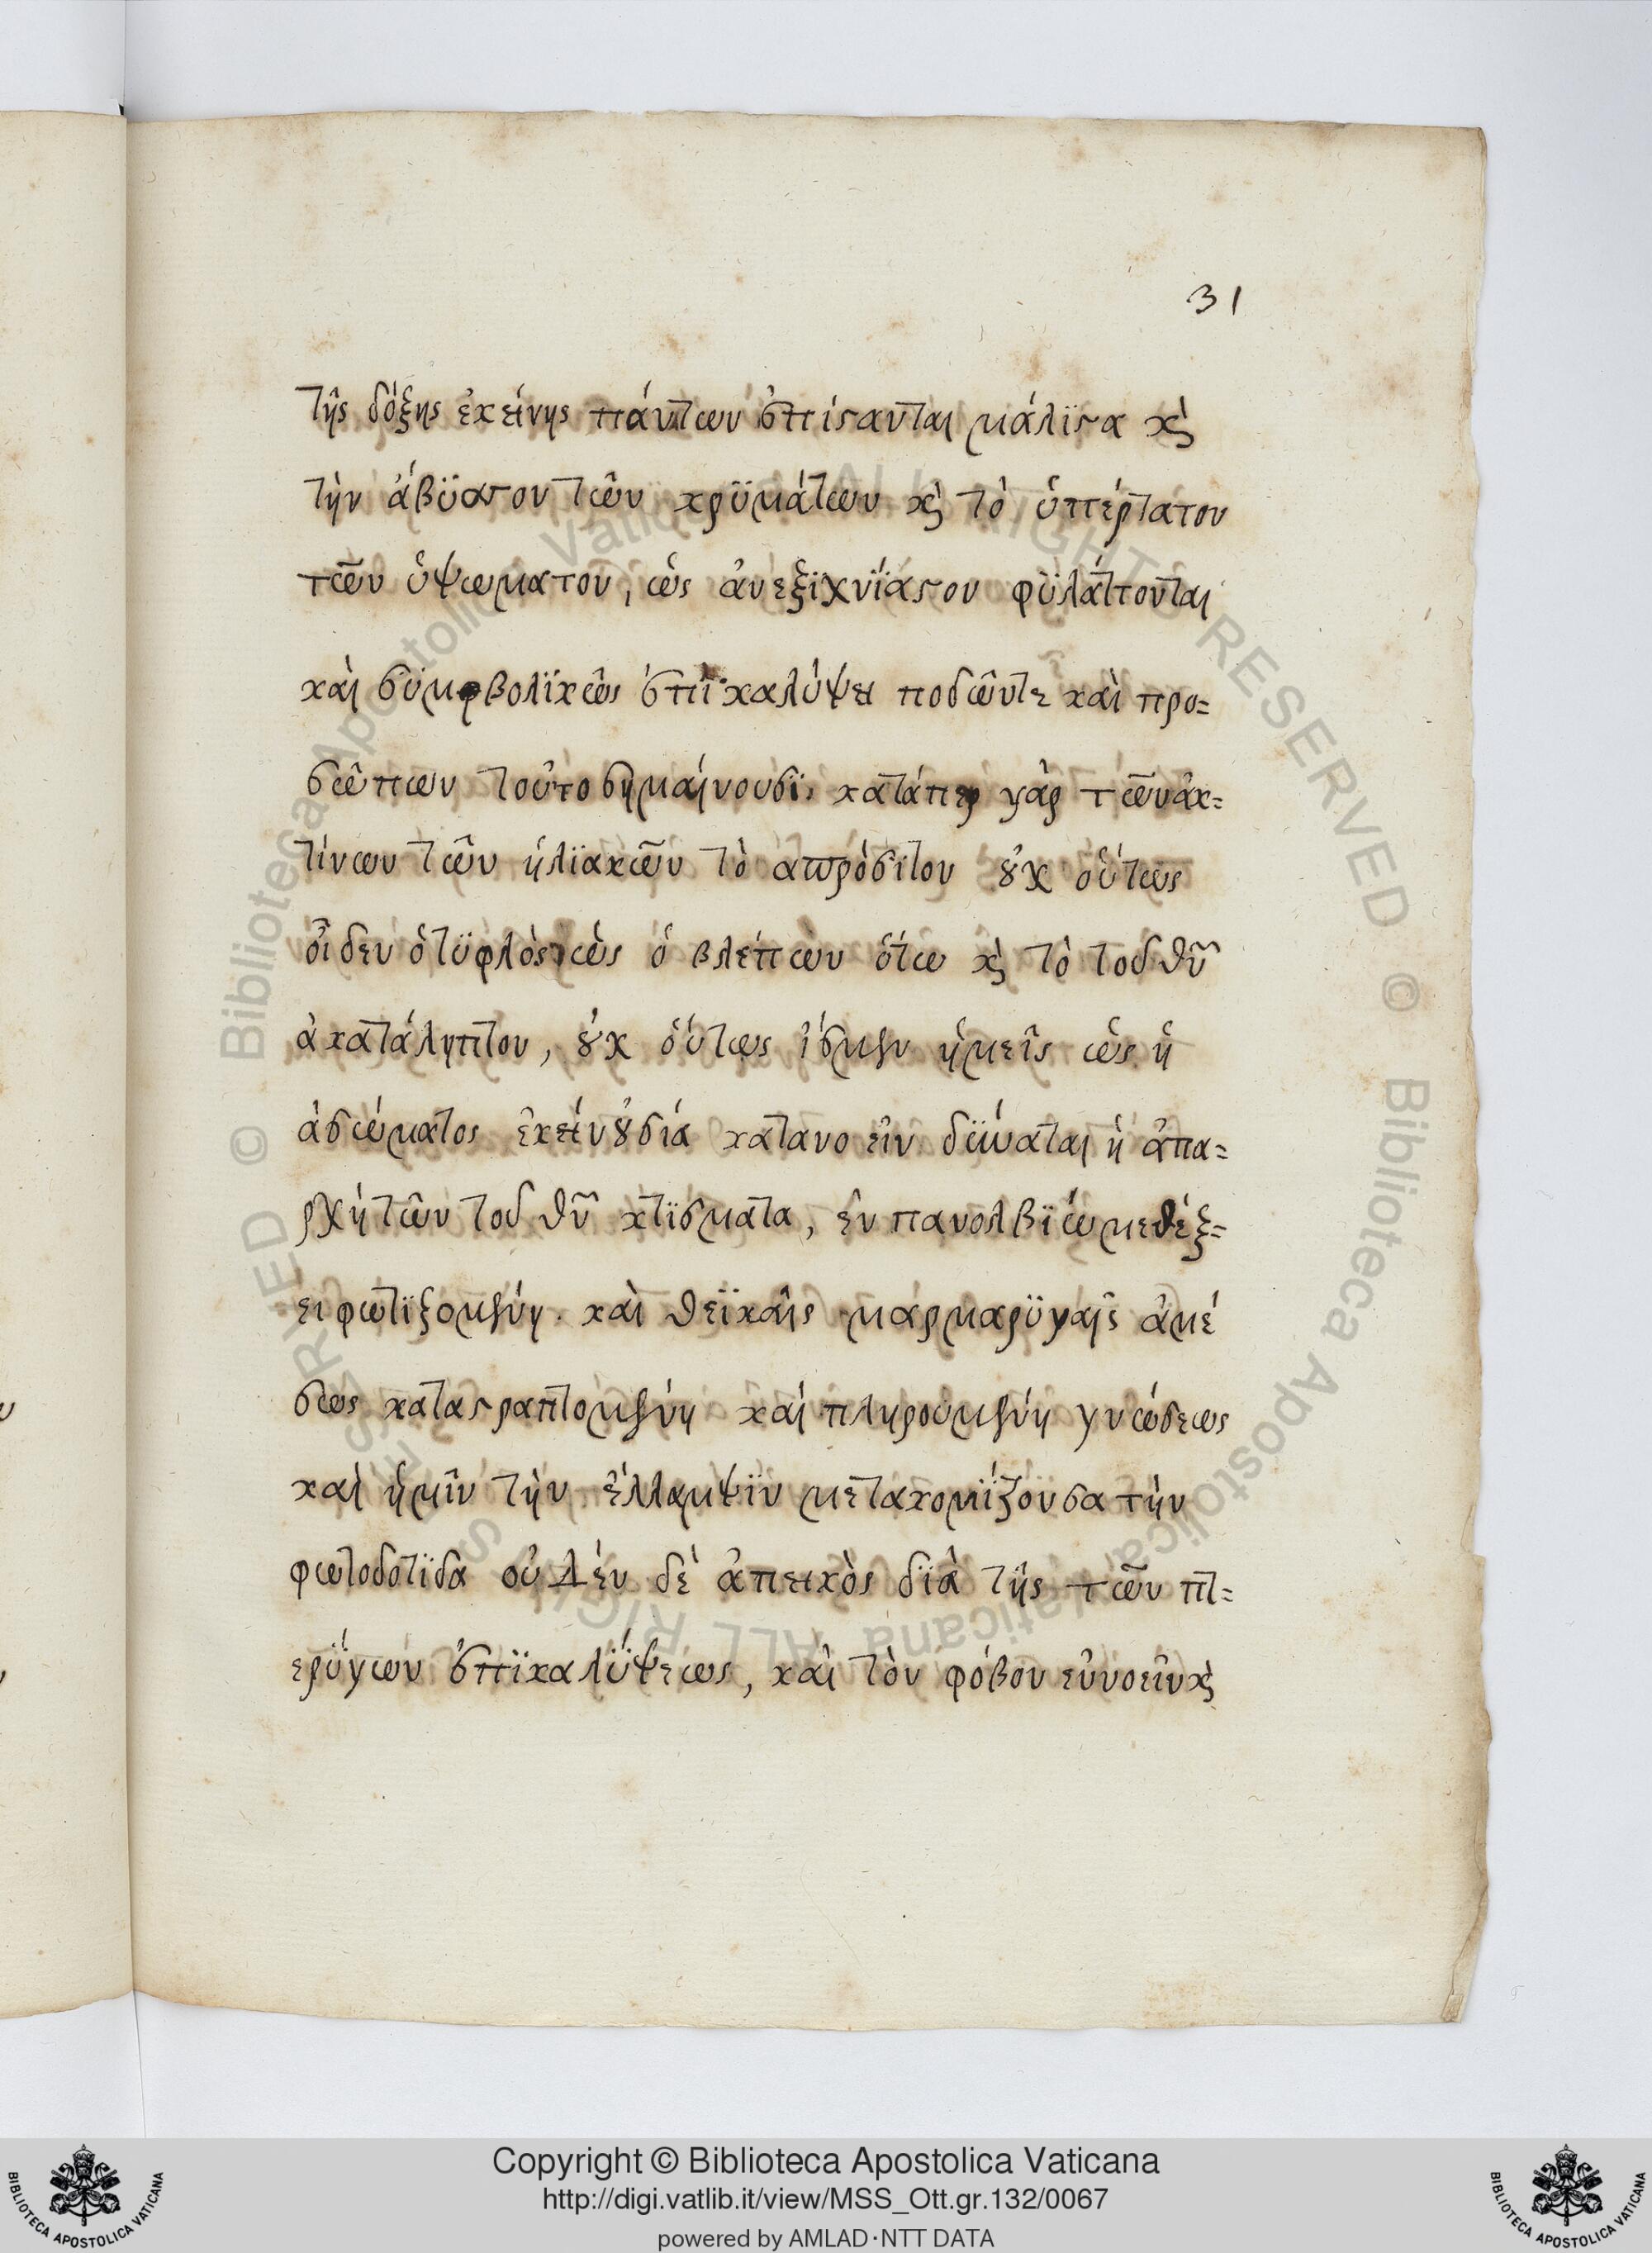 31
τῆς δόξης ἐκείνης πάντων ἐπίστανται μάλϊστα κὶ
τὴν ἄβϋσσον τῶν κρϋμάτων κὶ τὸ ὑπέρτατον
τῶν ὑψωματον, ὡς ἀνεξϊχνΐαστον φϋλάττονται
καὶ συμβολϊκῶς ἐπϊκαλύψει ποδῶντε καὶ προ=
σῶπων τοῦτο σημαίνουσϊ. κατάπερ γὰρ τῶν ἀκ=
τίνων τῶν ἡλϊακῶν τὸ απρόσιτον οὐχ οὕτως
οἶδεν ὁ τϋφλὸς, ὡς ὁ βλέπων οὕτω κὶ τὸ τοῦ θῦ
ἀκατάληπτον, οὐχ οὕτως ἴσμεν ἡμεῖς ὡς ἡ
ἀσώματος ἐκείν οὐσία κατανοεῖν δϋναται ἡ ἀπα=
ρχὴ τῶν τοῦ θῦ κτϊσματα, ἐν πανολβϊω μεθέξ=
ει φωτϊζομένη. καὶ θεϊκαῖς μαρμαρϋγαῖς ἀμέ
σως καταστραπτομένη καὶ πληρουμένη γνώσεως
καὶ ἡμῖν τὴν ἔλλαμψϊν μετακομΐζουσα τὴν
φωτοδοτϊδα οὐδὲν δὲ ἀπεικὸς δϊὰ τῆς τῶν πτ=
ερΰγων ἐπϊκαλΰψεως, καὶ τὸν φόβον εὐνοεῖν κὶ
Copyright © Biblioteca Apostolica Vaticana
http://digi.vatlib.it/view/MSS_Ott.gr.132/0067
powered by AMLAD·NTT DATA